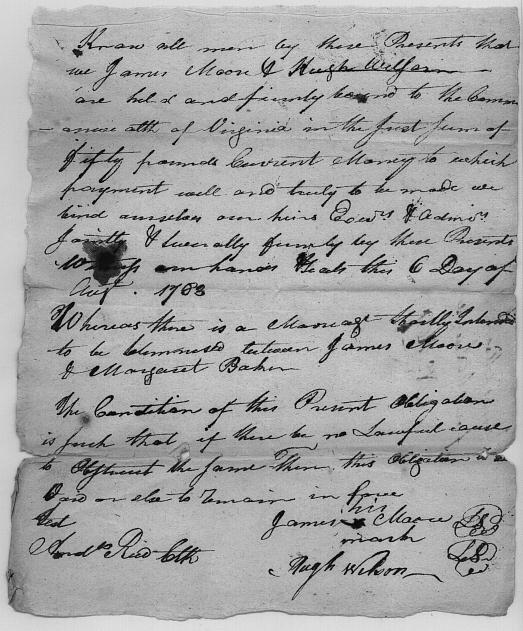 Know all men by these Presents that
we James Moore & Hugh Willson
are held and firmly bound to the Comm
onwealth of Virginia in the Just sum of
fifty pounds Current Money to which
payment well and truly to be made we
bind ourselves our heirs Exors & Admrs
Jointly & Severally firmly by these Presents
our hands & Seals this 6 Day of
Augt. 1783
Whereas there is a Marriage Shortly Intended
to be between James Moore
& Margaret Baker
The Condition of this Present Obligation
is such that if there be no Lawful cause
to Obstruct the same Then this Obligation is
Void or else to remain in force
Test James his x mark Moore LS
Andw Reid Clk
Hugh Wilson LS